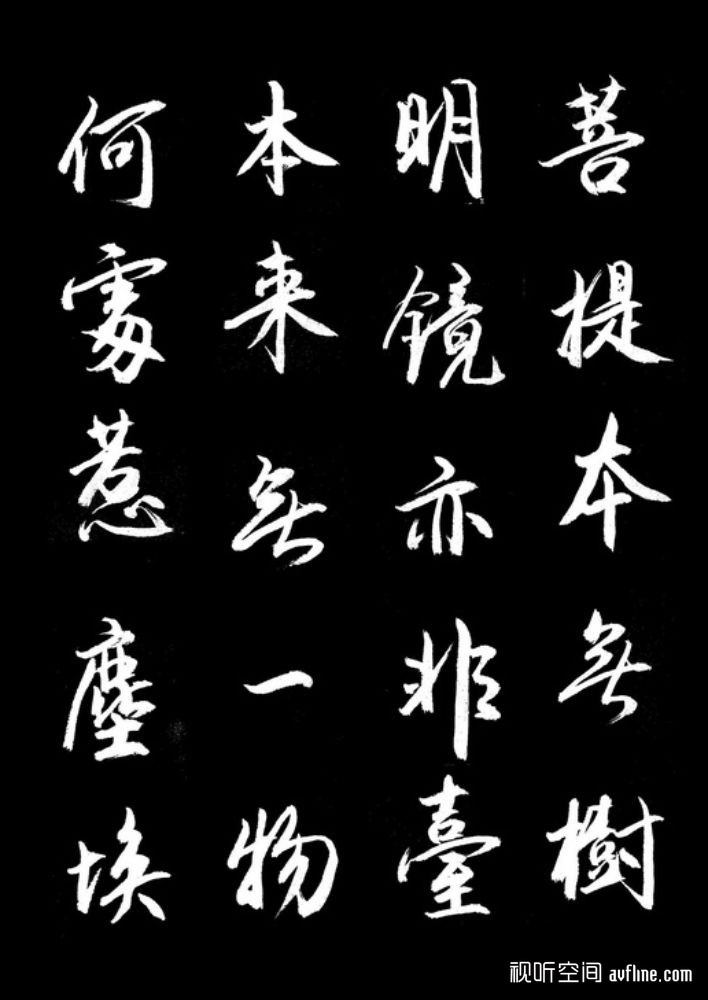 菩提本無樹
明鏡亦非臺
本来無一物
何處惹塵埃
视听空间 avfline.com